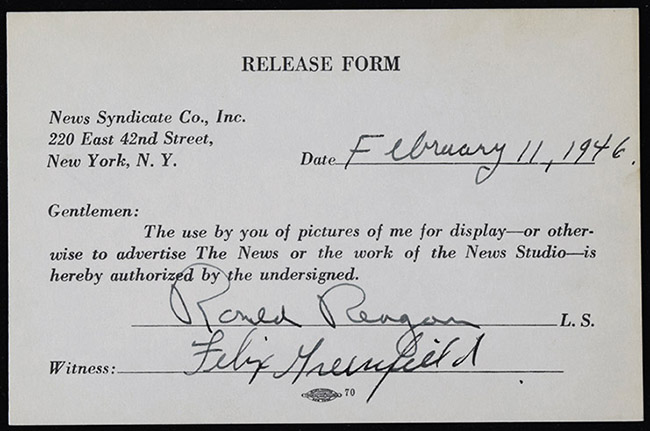 RELEASE FORM
News Syndicate Co., Inc.
220 East 42nd Street,
New York, N. Y.
Date February 11, 1946.
Gentlemen:
The use by you of pictures of me for display—or other-
wise to advertise The News or the work of the News Studio—is
hereby authorized by the undersigned.
Ronald Reagan L. S.
Witness: Felix Greenfield
70